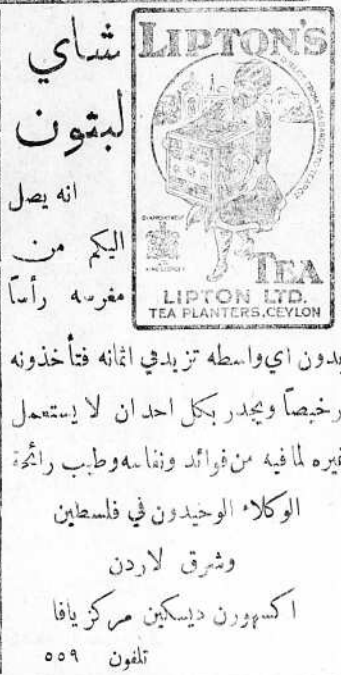 شاي
لبتون
انه يصل
اليكم من
مغرسه رأسًا
LIPTON'S
DIRECT FROM TEA GARDEN TO TEAPOT
BY APPOINTMENT
TEA
LIPTON LTD.
TEA PLANTERS, CEYLON
بدون اي واسطه تزيد في اثمانه فتأخذونه
رخيصًا ويجدر بكل احد ان لا يستعمل
غيره لما فيه من فوائد ونفاسه وطيب رائحة
الوكلاء الوحيدون في فلسطين
وشرق لاردن
اكسهورن ديسكين مركز يافا
تلفون ٥٥٩